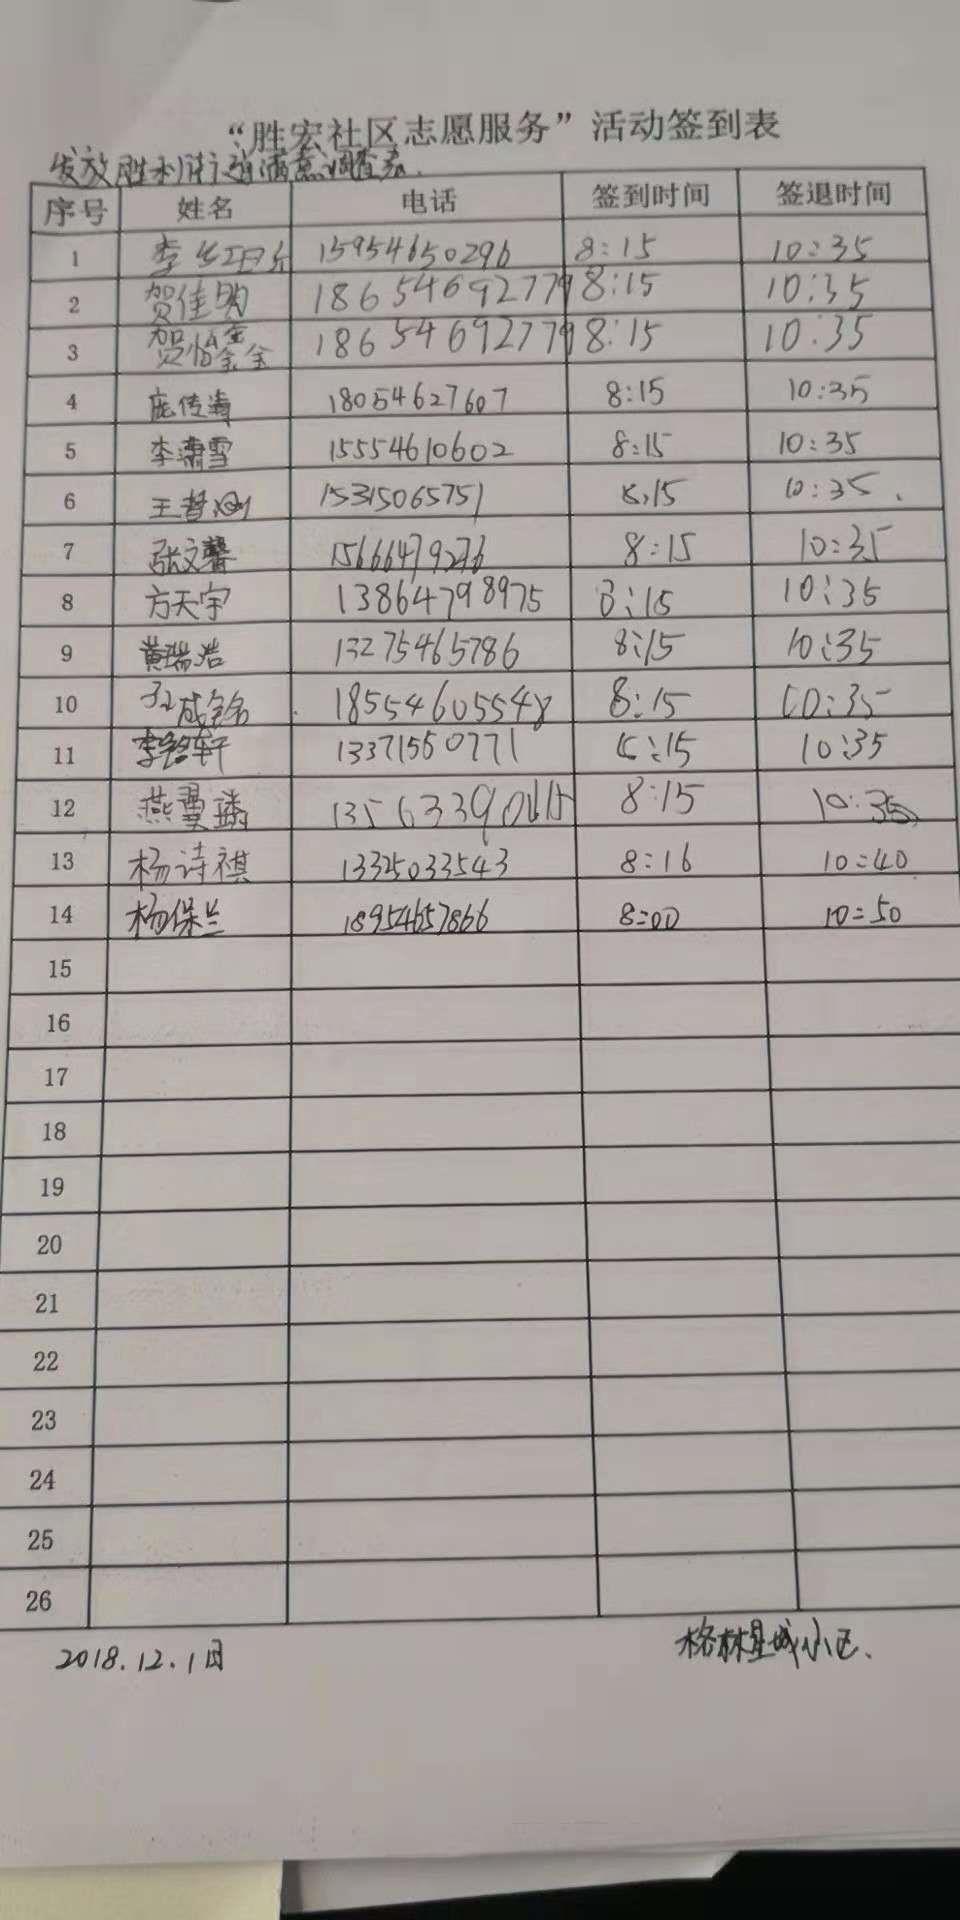 “胜宏社区志愿服务”活动签到表
发放胜利街道满意调查表.
序号 姓名 电话 签到时间 签退时间
1 李 15954650296 8:15 10:35
2 贺佳 18654692779 8:15 10:35
3 贺怡鑫 18654692779 8:15 10:35
4 庞传海 18054627607 8:15 10:35
5 李潇雪 15554610602 8:15 10:35
6 王 15315065751 8:15 10:35.
7 张文馨 15666479276 8:15 10:35
8 方天宇 13864798975 8:15 10:35
9 黄瑞浩 13275465786 8:15 10:35
10 孙成铭 18554605548 8:15 10:35
11 李铭轩 13371560771 8:15 10:35
12 燕翼 8:15 10:35
13 杨诗祺 13325033543 8:16 10:40
14 杨保兰 18954657866 8:00 10:50
15
16
17
18
19
20
21
22
23
24
25
26
2018.12.1日 格林星城小区.